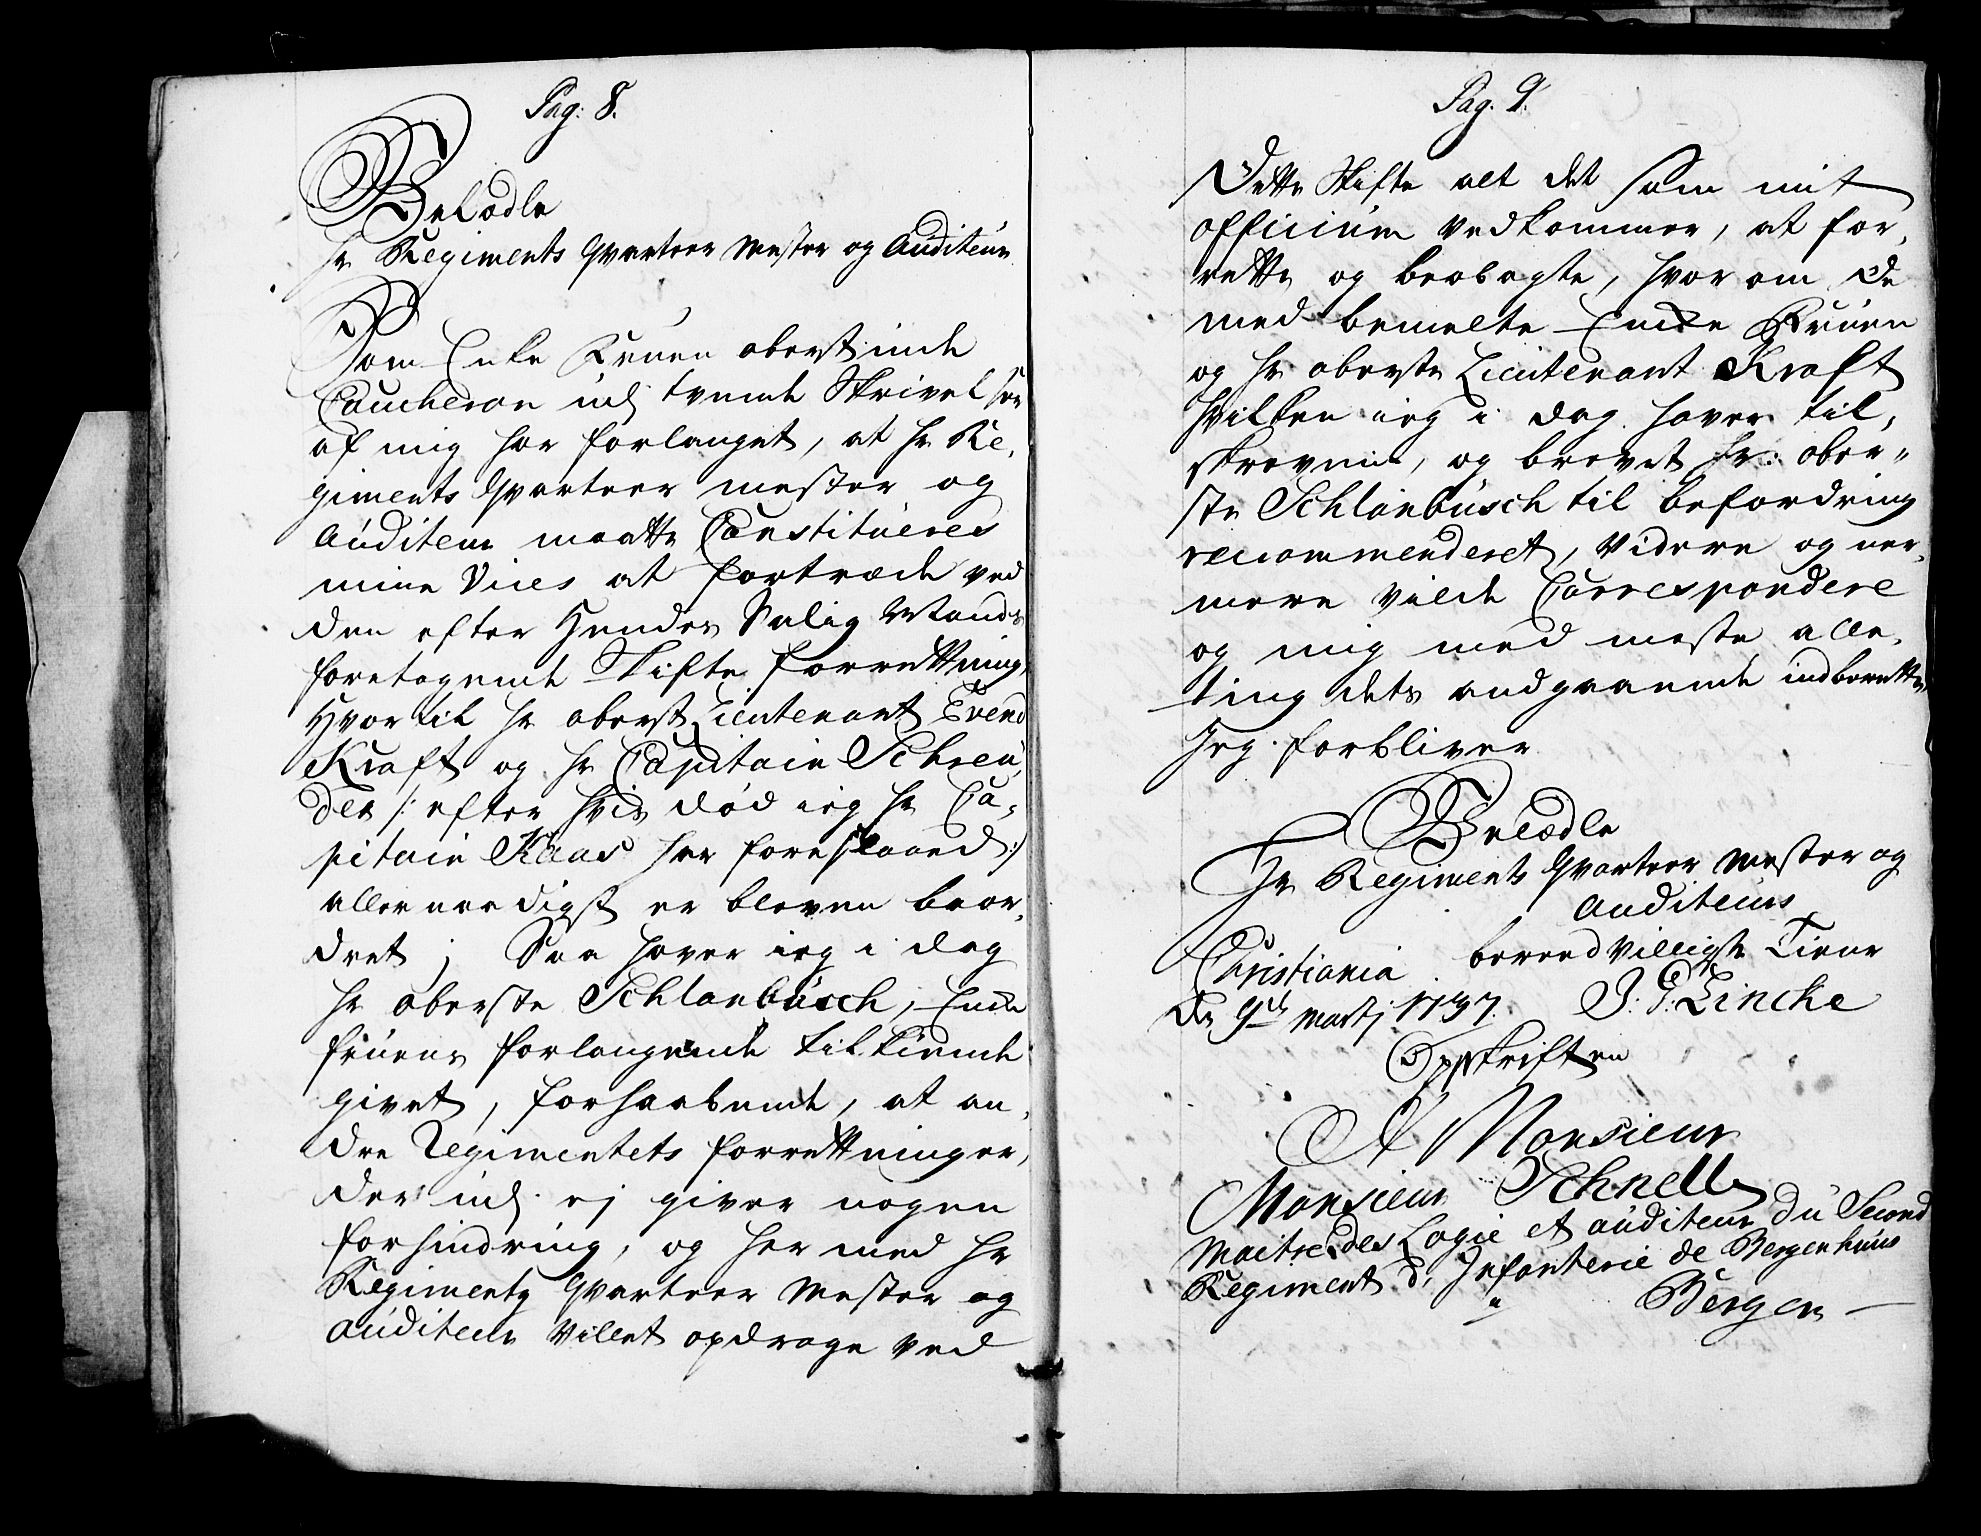 Pag: 8.
Velædle
Hr Regiments Qvarteer Mester og Auditeur
Som Enke Fruen oberstinde
Coucheron udj tvende Skrivelser
af mig har forlanget, at Hr Re,
giments Qvarteer mester og
Auditeur maatte Constitueres
mine Vices at fortræde ved
den efter Hendes Salig Mands
foretagende Skifte forrettning,
Hvortil Hr oberst Lieutenant Evend
Kraft og Hr Capitain Schreu,
der /: efter hvis død ieg Hr Ca,
pitain Kaas har foreslaaed :/
allernaadigst er bleven beor,
dret ; Saa haver ieg i dag
Hr oberste Schlanbusch, Enke
fruens forlangende tilkiende
givet, forhaabende, at an,
dre Regimentets forrettninger,
der udj ej giver nogen
forhindring, og her med Hr
Regiments Qvarteer Mester og
Auditeur villet opdrage ved
Pag. 9.
Dette Skifte alt det som mit
officium vedkommer, at for,
rette og beobagte, hvor om De
med bemelte Enke Fruen
og Hr oberste Lieutenant Kraft
hvilken ieg i dag haver til,
skrevene, og brevet Hr: ober,,
ste Schlanbusch til befordring
recommenderet, Videre og ner,
mere vilde Correspondere
og mig med meste alle,
ting dets andgaaende indberette,
Jeg forbliver
Velædle
Hr Regiments Qvarteer Mester og
Auditeurs
Christiania beredvilligste Tiener
Den 9de Martj 1737. J. P. Lincke
Opskriften
A Monsieur
Monsieur Schnell
Maitre des Logie et auditeur du Second
Regiment d, Infanterie de Bergenhuus
a Bergen